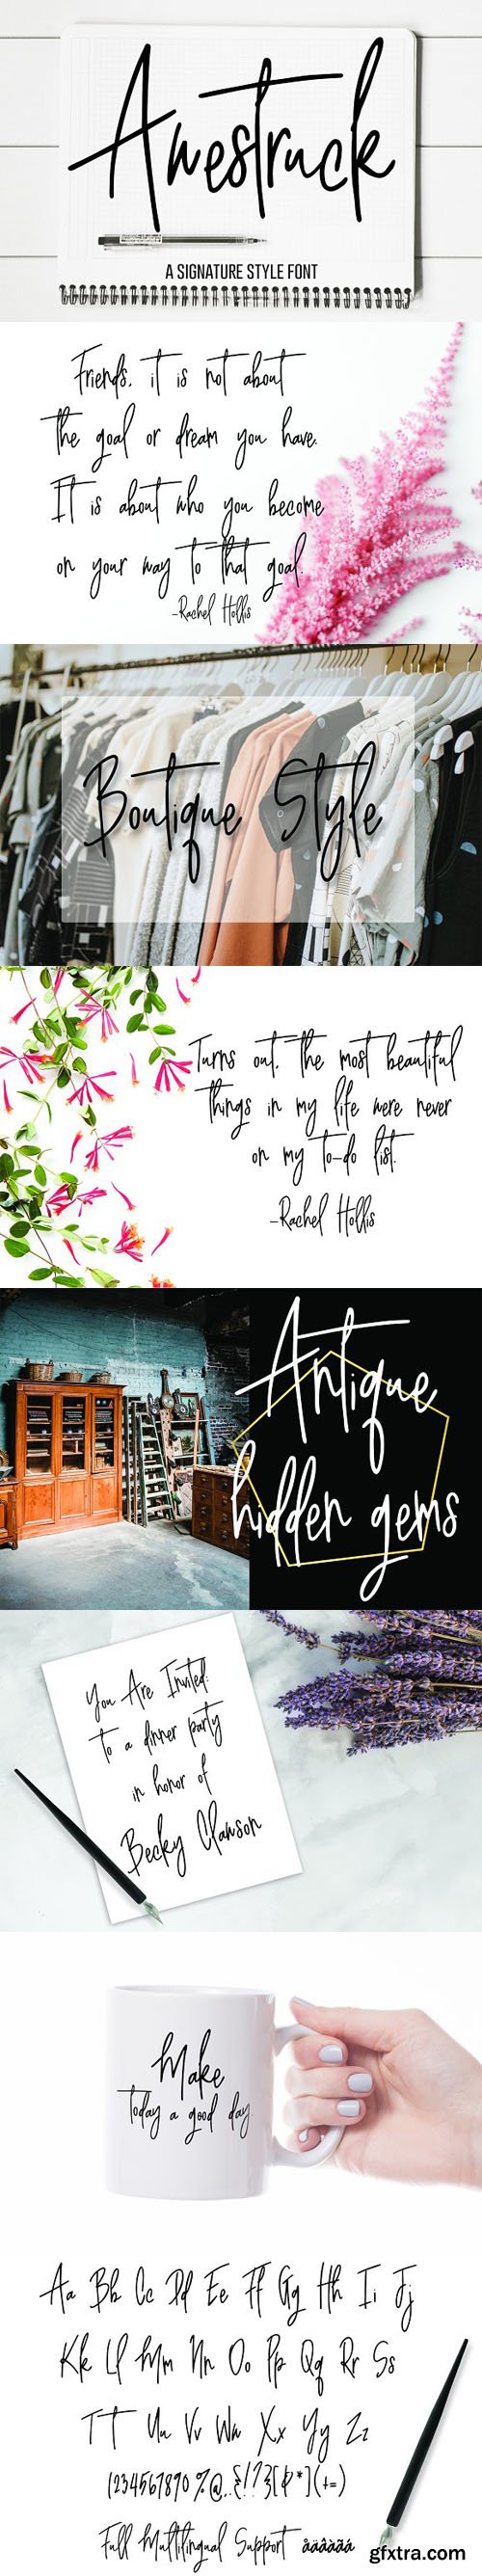 Awestruck
A SIGNATURE STYLE FONT
Friends, it is not about
the goal or dream you have.
It is about who you become
on your way to that goal.
-Rachel Hollis
Boutique Style
Turns out, the most beautiful
things in my life were never
on my to-do list.
-Rachel Hollis
Antique
hidden gems
You Are Invited:
to a dinner party
in honor of
Becky Clawson
Make
today a good day.
Aa Bb Cc Dd Ee Ff Gg Hh Ii Jj
Kk Ll Mm Nn Oo Pp Qq Rr Ss
Tt Uu Vv Ww Xx Yy Zz
1234567890 %@
Full Multilingual Support
gfxtra.com